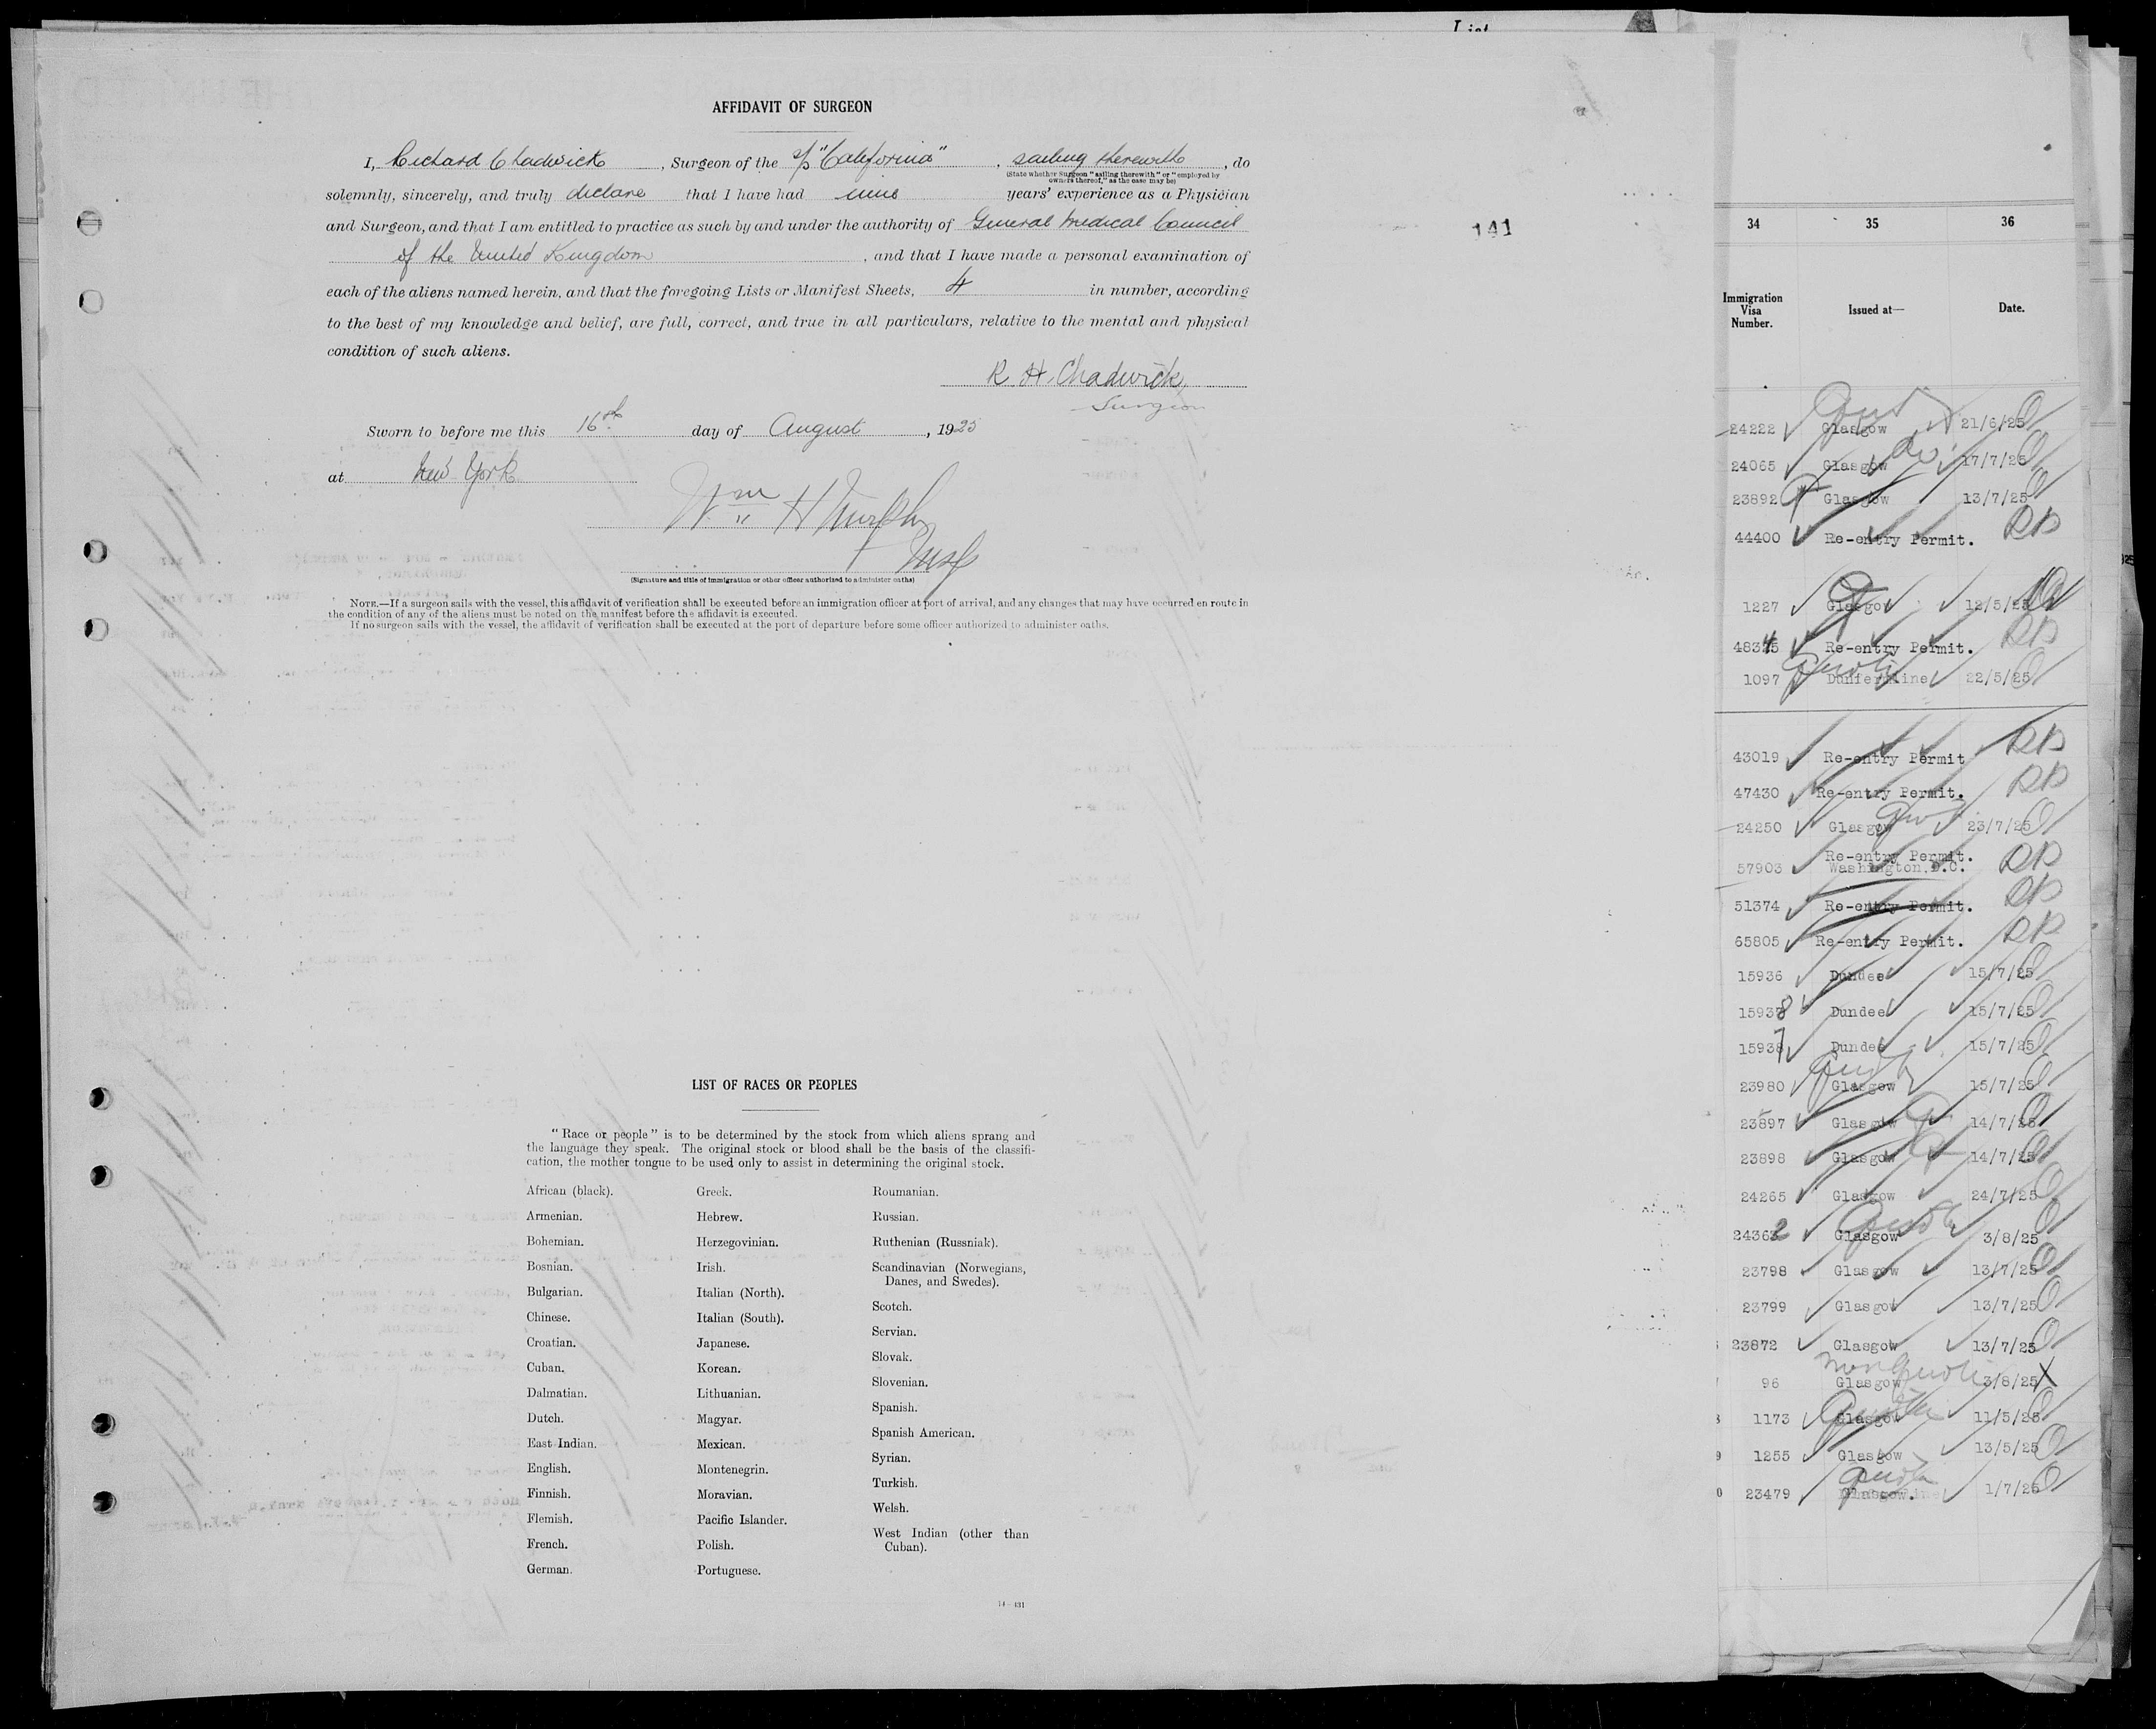 List
AFFIDAVIT OF SURGEON
I, Richard Chadwick, Surgeon of the s/s "California", sailing therewith, do
(State whether Surgeon "sailing therewith" or "employed by
owners thereof," as the case may be)
solemnly, sincerely, and truly declare that I have had nine years' experience as a Physician
and Surgeon, and that I am entitled to practice as such by and under the authority of General Medical Council
of the United Kingdom, and that I have made a personal examination of
each of the aliens named herein, and that the foregoing Lists or Manifest Sheets, 4 in number, according
to the best of my knowledge and belief, are full, correct, and true in all particulars, relative to the mental and physical
condition of such aliens.
R. H. Chadwick
Surgeon
Sworn to before me this 16th day of August, 1925
at New York
Wm H Murphy
Insp
(Signature and title of immigration or other officer authorized to administer oaths)
NOTE.—If a surgeon sails with the vessel, this affidavit of verification shall be executed before an immigration officer at port of arrival, and any changes that may have occurred en route in
the condition of any of the aliens must be noted on the manifest before the affidavit is executed.
If no surgeon sails with the vessel, the affidavit of verification shall be executed at the port of departure before some officer authorized to administer oaths.
141
LIST OF RACES OR PEOPLES
"Race or people" is to be determined by the stock from which aliens sprang and
the language they speak. The original stock or blood shall be the basis of the classifi-
cation, the mother tongue to be used only to assist in determining the original stock.
African (black).
Armenian.
Bohemian.
Bosnian.
Bulgarian.
Chinese.
Croatian.
Cuban.
Dalmatian.
Dutch.
East Indian.
English.
Finnish.
Flemish.
French.
German.
Greek.
Hebrew.
Herzegovinian.
Irish.
Italian (North).
Italian (South).
Japanese.
Korean.
Lithuanian.
Magyar.
Mexican.
Montenegrin.
Moravian.
Pacific Islander.
Polish.
Portuguese.
Roumanian.
Russian.
Ruthenian (Russniak).
Scandinavian (Norwegians,
Danes, and Swedes).
Scotch.
Servian.
Slovak.
Slovenian.
Spanish.
Spanish American.
Syrian.
Turkish.
Welsh.
West Indian (other than
Cuban).
34 35 36
Immigration
Visa
Number.
Issued at—
Date.
24222 Glasgow 21/6/25
24065 Glasgow 17/7/25
23892 Glasgow 13/7/25
44400 Re-entry Permit. RP
1227 Glasgow 12/5/25
Re-entry Permit. RP
1097 22/5/25
43019 Re-entry Permit RP
47430 Re-entry Permit. RP
24250 Glasgow 23/7/25
Re-entry Permit.
57903 Washington, D.C. RP
51374 Re-entry Permit. RP
65805 Re-entry Permit. RP
15936 Dundee 15/7/25
15938 Dundee 15/7/25
15937 Dundee 15/7/25
23980 Glasgow 15/7/25
23897 Glasgow 14/7/25
23898 Glasgow 14/7/25
24265 Glasgow 24/7/25
24362 Glasgow 3/8/25
23798 Glasgow 13/7/25
23799 Glasgow 13/7/25
23872 Glasgow 13/7/25
non quota
96 Glasgow 3/8/25
1173 Glasgow 11/5/25
1255 Glasgow 13/5/25
quota
23479 Glasgow. 1/7/25